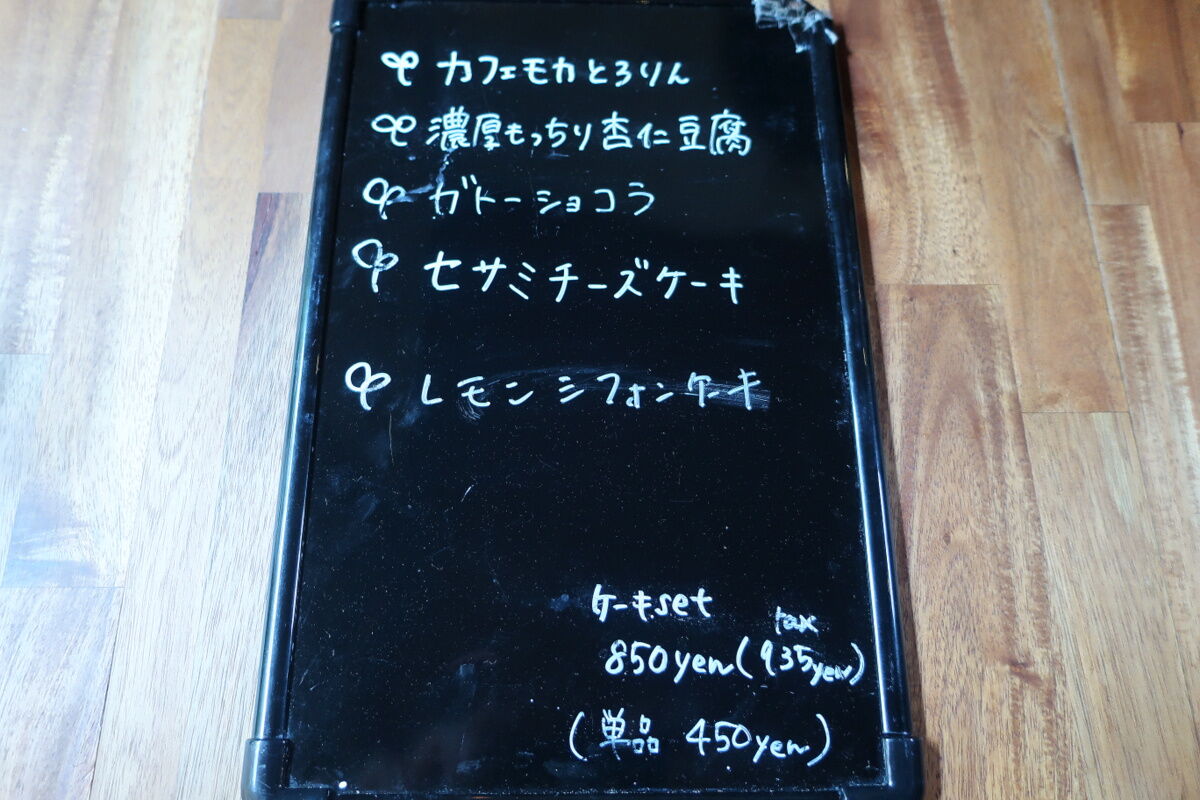 カフェモカとろりん
濃厚もっちり杏仁豆腐
ガトーショコラ
セサミチーズケーキ
レモンシフォンケーキ
ケーキset
tax
850yen(935yen)
(単品 450yen)